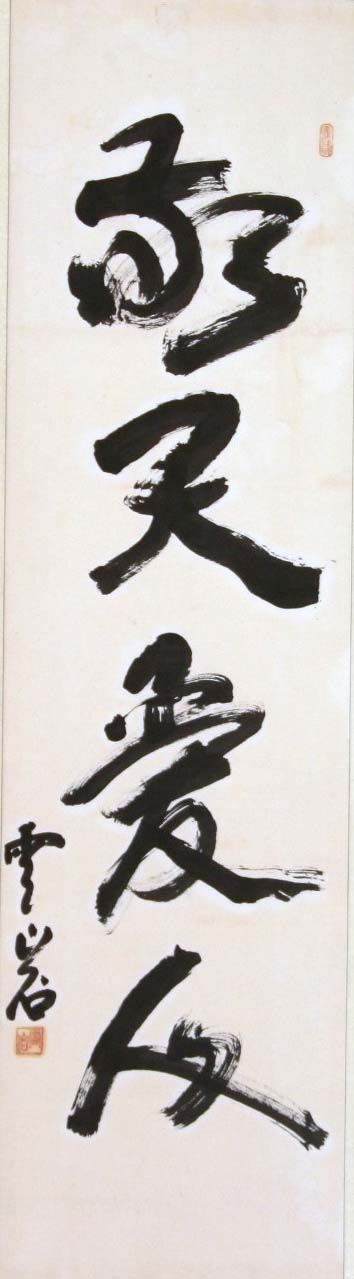 敬天愛人
雲岩